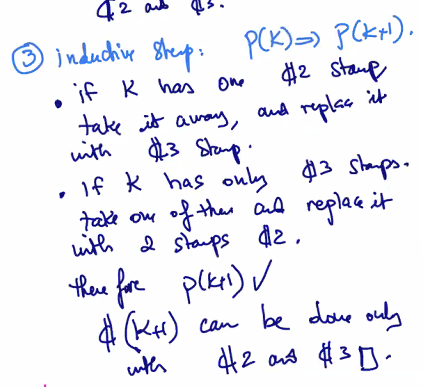 ¢2 and ¢3.
③ inductive step: P(K) => P(K+1).
• if K has one ¢2 stamp
take it away, and replace it
with ¢3 stamp.
• if K has only ¢3 stamps.
take one of them and replace it
with 2 stamps ¢2.
there fore P(K+1) ✓
¢(K+1) can be done only
with ¢2 and ¢3 □.